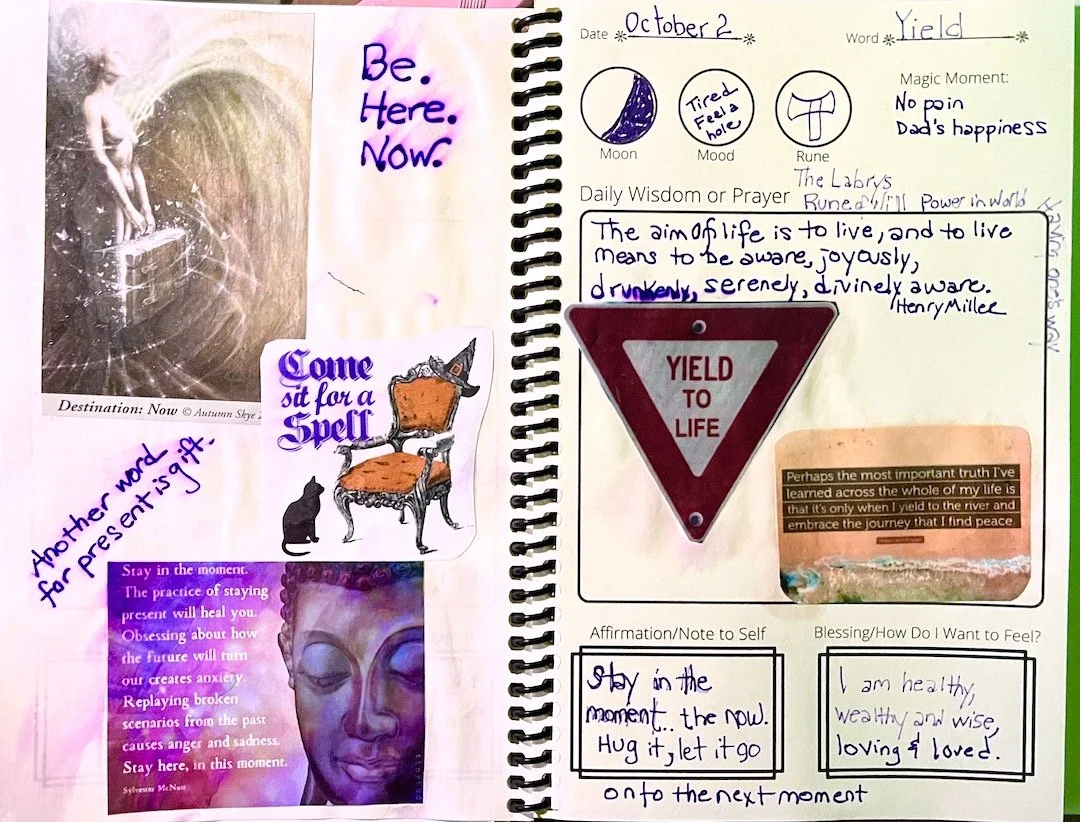 Be.
Here.
Now.
Destination: Now © Autumn Skye
Come
sit for a
Spell
Another word
for present is gift.
Stay in the moment.
The practice of staying
present will heal you.
Obsessing about how
the future will turn
out creates anxiety.
Replaying broken
scenarios from the past
causes anger and sadness.
Stay here, in this moment.
Sylvester McNutt
Date October 2
Word Yield
Moon
Tired
Feel a
hole
Mood
Rune
Magic Moment:
No pain
Dad's happiness
The Labrys
Rune of Will Power in World
having one's way
Daily Wisdom or Prayer
The aim of life is to live, and to live
means to be aware, joyously,
drunkenly, serenely, divinely aware.
Henry Miller
YIELD
TO
LIFE
Perhaps the most important truth I've
learned across the whole of my life is
that it's only when I yield to the river and
embrace the journey that I find peace.
Affirmation/Note to Self
Stay in the
moment... the now.
Hug it, let it go
onto the next moment
Blessing/How Do I Want to Feel?
I am healthy,
wealthy and wise,
loving & loved.